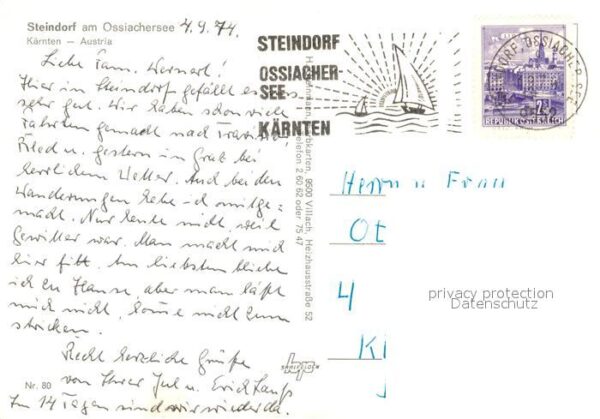 Steindorf am Ossiachersee 4.9.74.
Kärnten – Austria
Liebe Fam.
Hier in Steindorf gefällt es uns
sehr gut. Wir haben schon viele
Fahrten gemacht nach
u. gestern in Graz bei
herrlichem Wetter. Auch bei den
Wanderungen habe ich mitge-
macht. Nur heute nicht, weil
Gewitter war. Man macht mich
hier fitt. Am liebsten bliebe
ich zu Hause, aber man läßt
mich nicht, komme nicht zum
stricken.
Recht herzliche Grüße
von Ihrer Jul u. Erich
In 14 Tagen sind wir wieder da.
Nr. 80
STEINDORF
OSSIACHER-
SEE
KÄRNTEN
OSSIACHER SEE
REPUBLIK ÖSTERREICH
9500 Villach, Heizhausstraße 52
Telefon 2 60 62 oder 75 47
Herrn u Frau
Ot
4
Ki
privacy protection
Datenschutz